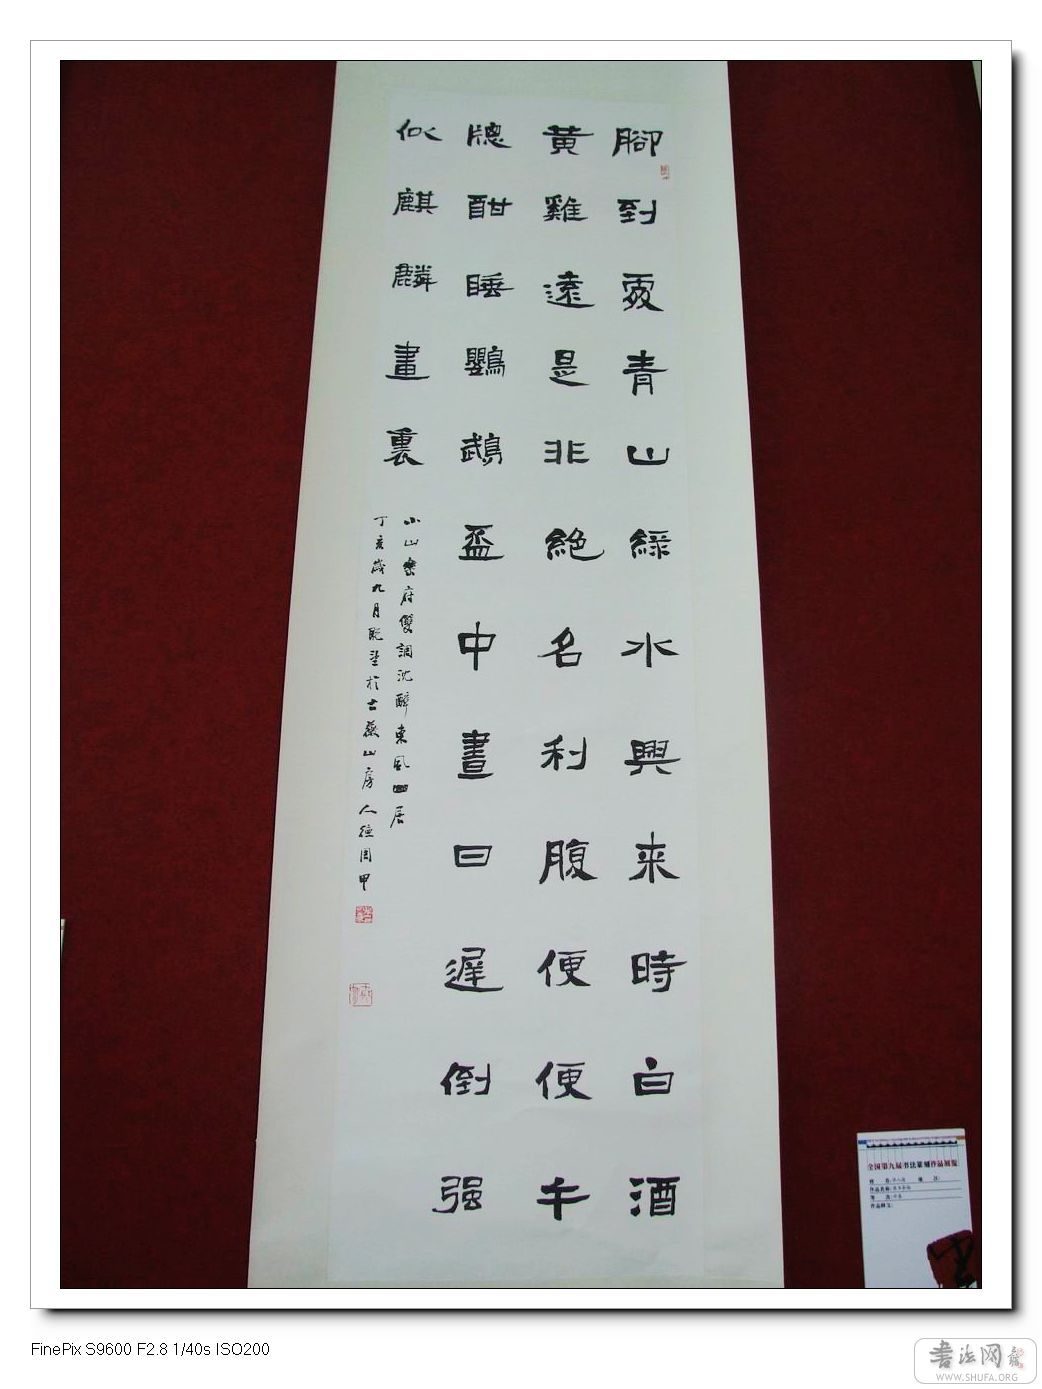 腳到處青山綠水興来時白酒
黃雞遠是非絕名利腹便便午
牕酣睡鸚鵡盃中晝日遲倒强
似麒麟畫裏
小山樂府雙調沈醉東風
丁亥歲九月
山房
全国第九届书法篆刻作品展览
FinePix S9600 F2.8 1/40s ISO200
书法网
WWW.SHUFA.ORG